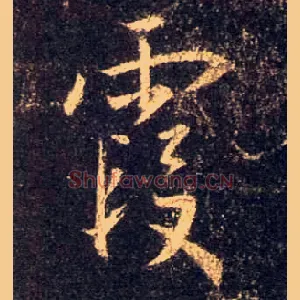 霞
Shufawang.CN